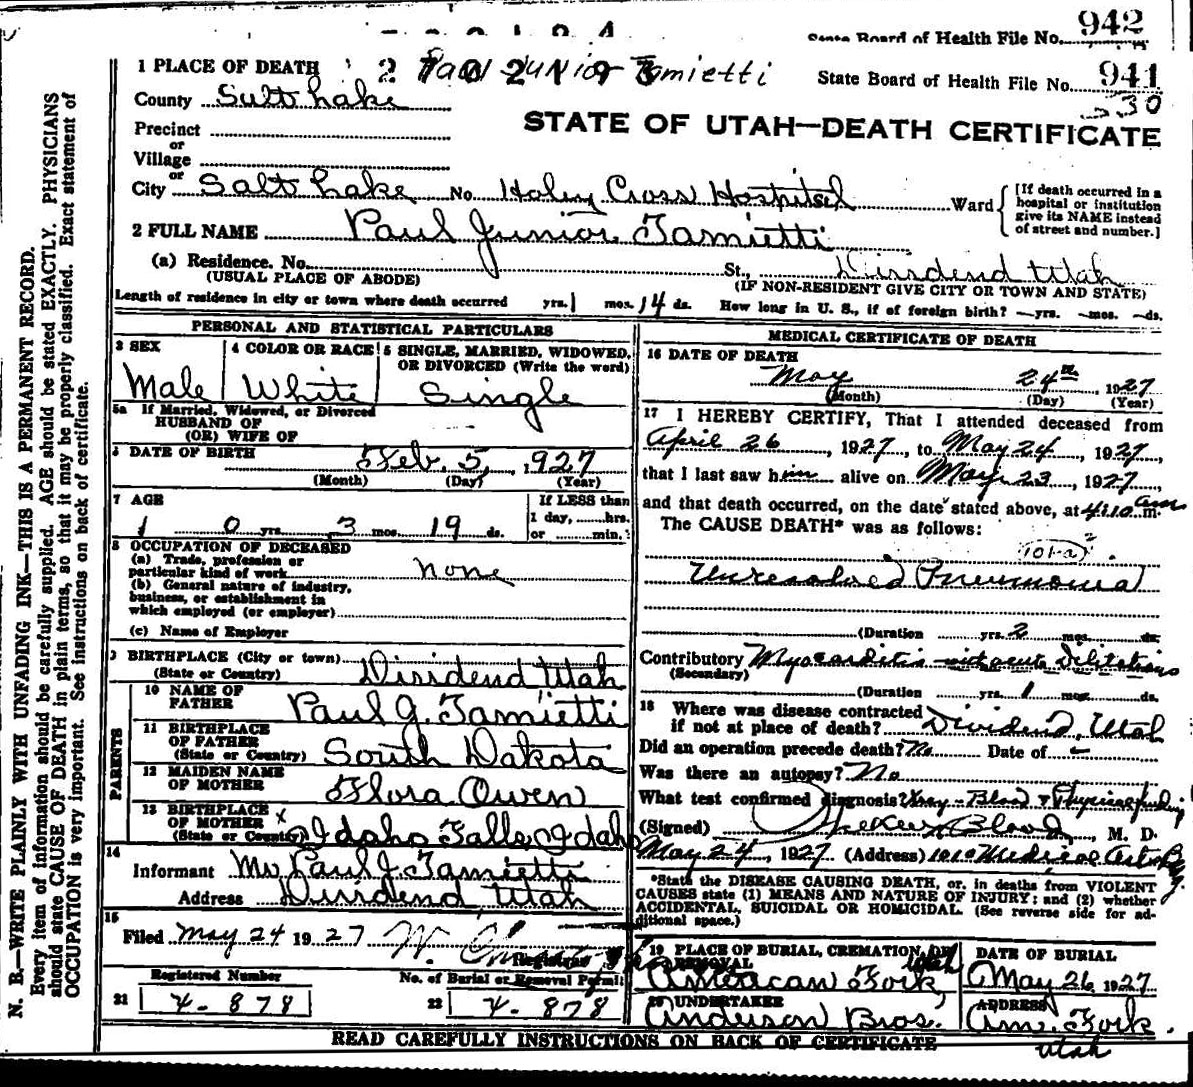 942
State Board of Health File No.
2 7 0 2 1 9 3 Paul Junior Tamietti
State Board of Health File No. 941
330
1 PLACE OF DEATH
County Salt Lake
STATE OF UTAH—DEATH CERTIFICATE
Precinct
or
Village
or
City Salt Lake No. Holey Cross Hospital Ward
[If death occurred in a hospital or institution give its NAME instead of street and number.]
2 FULL NAME Paul Junior Tamietti
(a) Residence. No. St., Dividend Utah
(USUAL PLACE OF ABODE) (IF NON-RESIDENT GIVE CITY OR TOWN AND STATE)
Length of residence in city or town where death occurred yrs. 1 mos. 14 ds. How long in U. S., if of foreign birth? —yrs. —mos. —ds.
PERSONAL AND STATISTICAL PARTICULARS
3 SEX 4 COLOR OR RACE 5 SINGLE, MARRIED, WIDOWED, OR DIVORCED (Write the word)
Male White Single
5a If Married, Widowed, or Divorced
HUSBAND OF
(OR) WIFE OF
DATE OF BIRTH Feb. 5, 1927
(Month) (Day) (Year)
7 AGE If LESS than
1 day, ......hrs.
0 yrs. 3 mos. 19 ds. or ......min.
8 OCCUPATION OF DECEASED
(a) Trade, profession or
particular kind of work none
(b) General nature of industry,
business, or establishment in
which employed (or employer)
(c) Name of Employer
9 BIRTHPLACE (City or town)
(State or Country) Dividend Utah
PARENTS
10 NAME OF FATHER Paul J. Tamietti
11 BIRTHPLACE OF FATHER (State or Country) South Dakota
12 MAIDEN NAME OF MOTHER Flora Owen
13 BIRTHPLACE OF MOTHER (State or Country) Idaho Falls, Idaho
14
Informant Mr Paul J. Tamietti
Address Dividend Utah
15
Filed May 24 1927
Registrar
Registered Number No. of Burial or Removal Permit
21 4-878 22 4-878
MEDICAL CERTIFICATE OF DEATH
16 DATE OF DEATH
May 24th 1927
(Month) (Day) (Year)
17 I HEREBY CERTIFY, That I attended deceased from
April 26, 1927, to May 24, 1927,
that I last saw him alive on May 23, 1927,
and that death occurred, on the date stated above, at 4:10 am m.
The CAUSE DEATH* was as follows:
101-a
Unresolved Pneumonia
(Duration yrs. 2 mos. ds.
Contributory Myocarditis with acute Dilitations
(Secondary)
(Duration yrs. 1 mos. ds.
18 Where was disease contracted
if not at place of death? Dividend, Utah
Did an operation precede death? No Date of —
Was there an autopsy? No
What test confirmed diagnosis? Xray - Blood & Physical finding
(Signed) Blood, M. D.
May 24, 1927 (Address) 1010 Medical Arts Bldg.
*State the DISEASE CAUSING DEATH, or, in deaths from VIOLENT
CAUSES state (1) MEANS AND NATURE OF INJURY; and (2) whether
ACCIDENTAL, SUICIDAL OR HOMICIDAL. (See reverse side for ad-
ditional space.)
19 PLACE OF BURIAL, CREMATION, OR REMOVAL DATE OF BURIAL
American Fork, Utah May 26 1927
20 UNDERTAKER ADDRESS
Anderson Bros. Am. Fork. Utah
READ CAREFULLY INSTRUCTIONS ON BACK OF CERTIFICATE
N. B.—WRITE PLAINLY WITH UNFADING INK—THIS IS A PERMANENT RECORD.
Every item of information should be carefully supplied. AGE should be stated EXACTLY. PHYSICIANS
should state CAUSE OF DEATH in plain terms, so that it may be properly classified. Exact statement of
OCCUPATION is very important. See instructions on back of certificate.